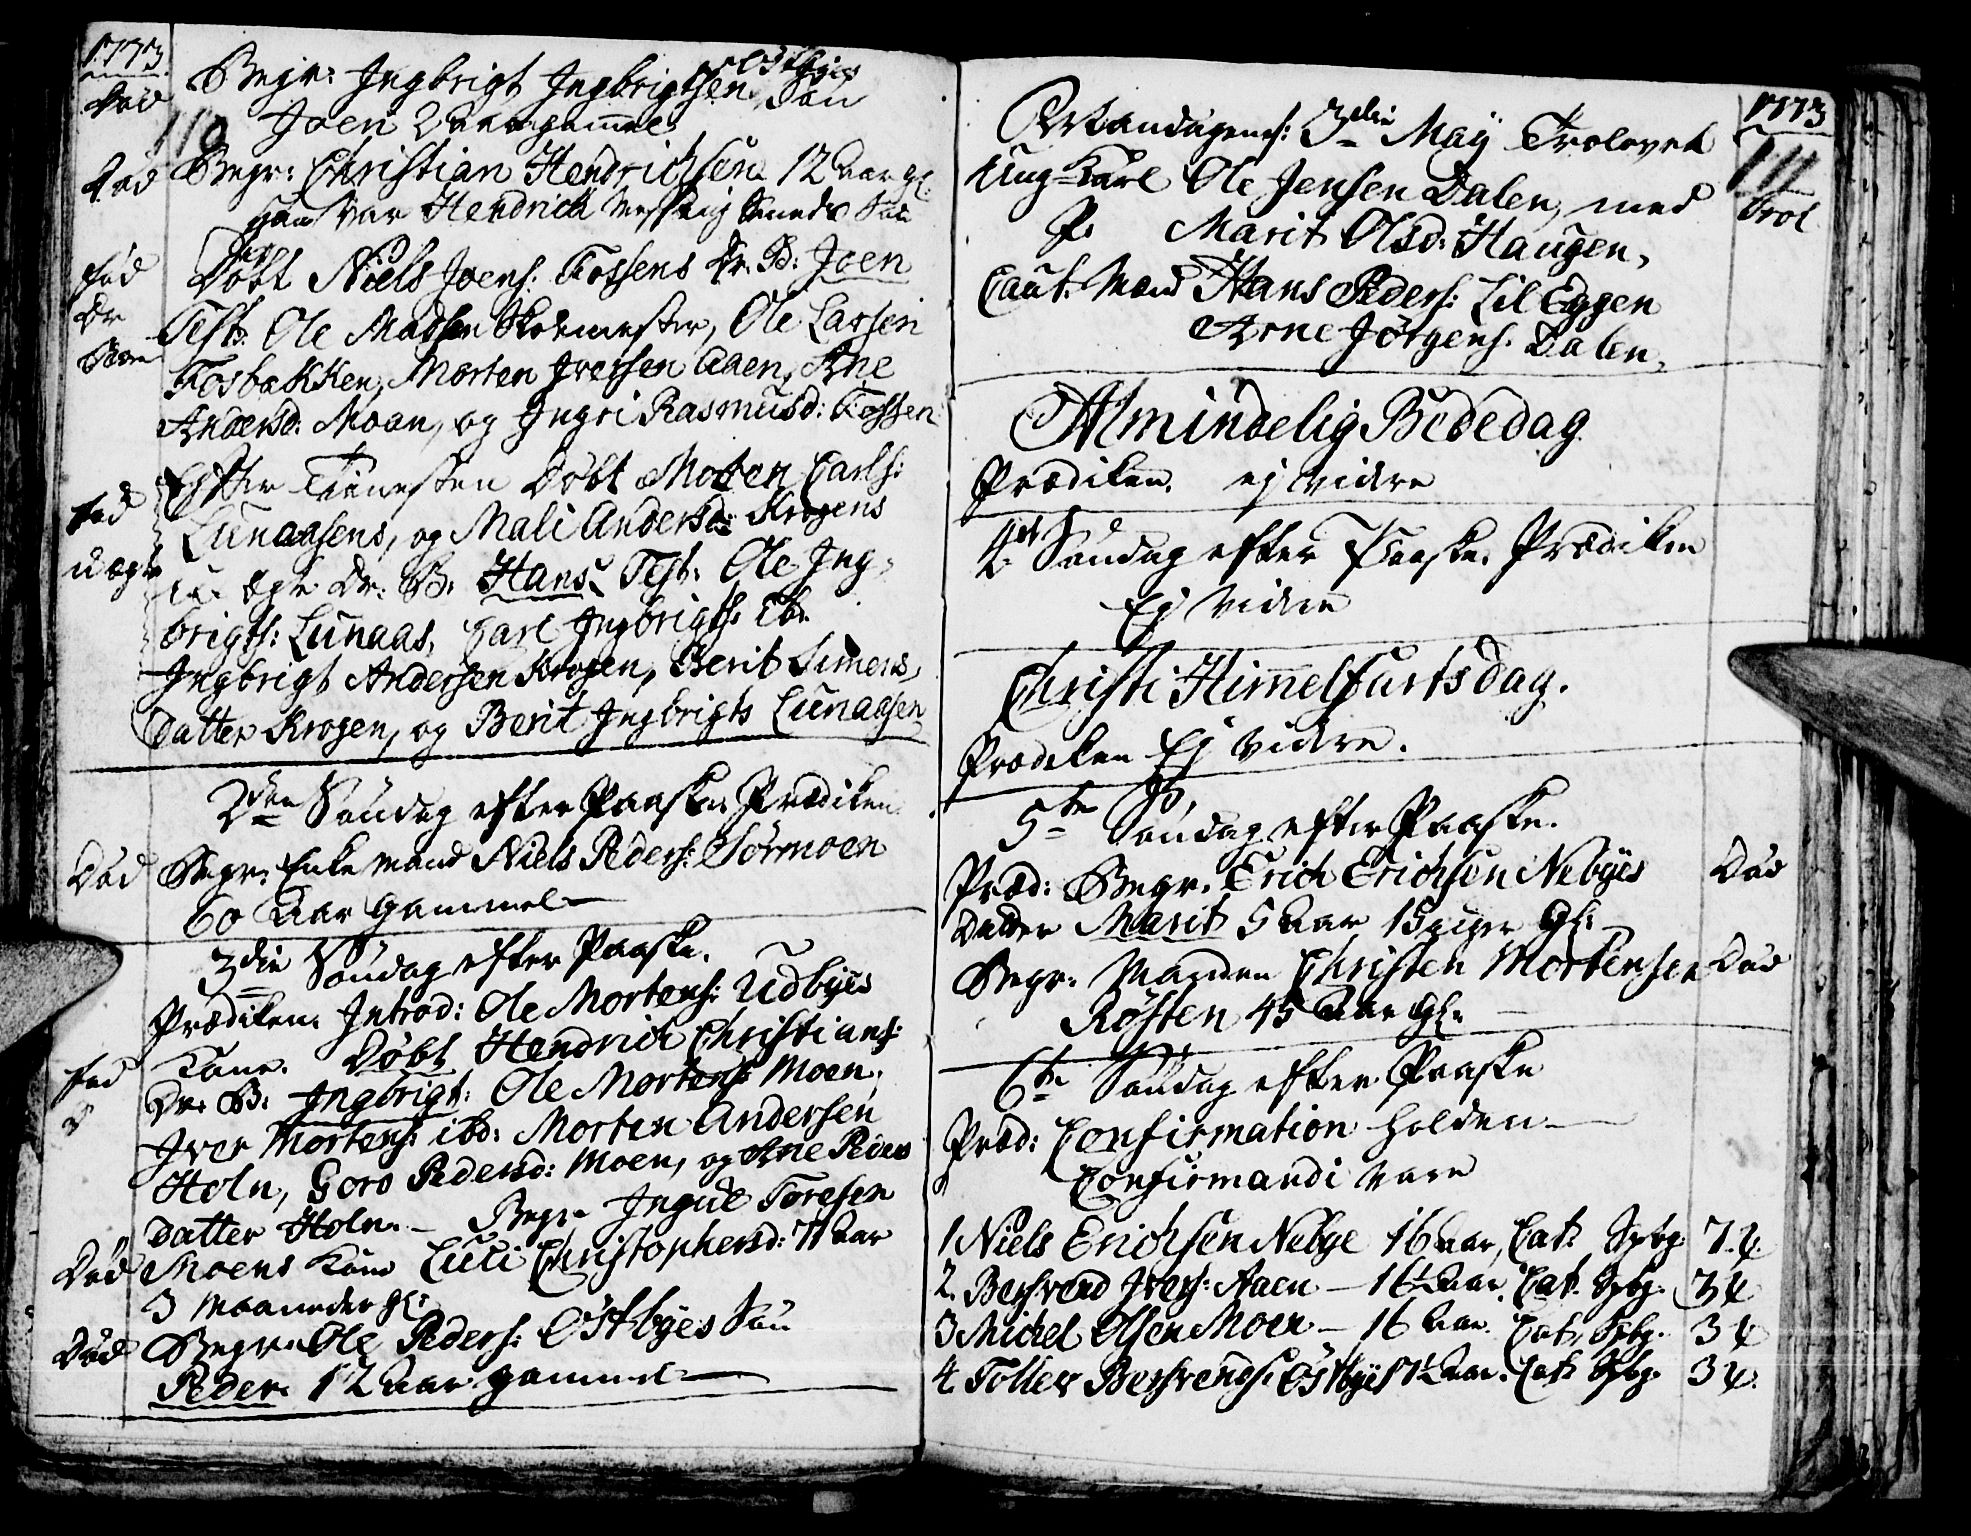 1773
Död Begr: Ingbrigt Ingbrigtsen Östbyes Sön
110 Joen 2 Aar gammel
Död Begr: Christian Hendrichsen 12 Aar gl:
han var Hendrich Smeds Sön
föd Döbt Niels Joens: Fossens Dr. B: Joen
Dr Test: Ole Madsen Skolemester, Ole Larsen
Barn Fosbakken, Morten Iversen Aaen, Ane
Andersd: Moan, og Ingri Rasmusd: Fossen
Efter Tienesten Döbt Morten Carls:
föd Lunaasens, og Mali Andersd: Krogens
uægte u. ægte Dr: B: Hans. Test: Ole Ing-
brigts: Lunaas, Carl Ingbrigts: ibd.
Ingbrigt Andersen Krogen, Berit Simens
Datter Krogen, og Berit Ingbrigts Lunaasen
2den Söndag efter Paaske. Prædiken
Död Begr: Enke Mand Niels Peders: Sörmoen
60 Aar gammel
3die Söndag efter Paaske.
Prædiken. Introd: Ole Mortens: Udbyes
Kone. Döbt Hendrich Christians:
föd Dr. B. Ingbrigt: Ole Mortens: Moen,
Iver Mortens: ibd: Morten Andersen
Holn, Goro Pedersd: Moen, og Ane Peders
Datter Holn. — Begr. Ingue Toresen
Död Moens Kone Luci Christophersd: 71 Aar
3 Maaneder gl:
Död Begr. Ole Peders: Östbyes Sön
Peder. 12 Aar gammel
1773
Onsdagens: 3die Maÿ Trolovet
111
Ung Karl Ole Jensen Dalen, med
Trol
P. Marit Olsd: Haugen,
Caut. Mænd Hans Peders: Lil Eggen
Arne Jörgens. Dalen.
Almindelig Bededag
Prædiken. ej Videre
4de Söndag efter Paaske. Prædiken
Ej Videre
Christi Himelfartsdag.
Prædiken Ej Videre.
5te Söndag efter Paaske.
Præd: Begr. Erich Erichsen Nebyes Död
Datter Marit 5 Aar 15 uger gl:
Begr. Manden Christen Mortensen Död
Rösten 45 Aar gl.
6te Söndag efter Paaske
Præd: Confirmation holden
Confirmandi vare
1 Niels Erichsen Nebye 16 Aar, Cat:
2. Bersvend Ivers: Aaen — 16½ Aar. Cat.
3 Michel Olsen Moen — 16 Aar. Cat.
4. Toller Bersvends: Östbye 17½ Aar. Cat: